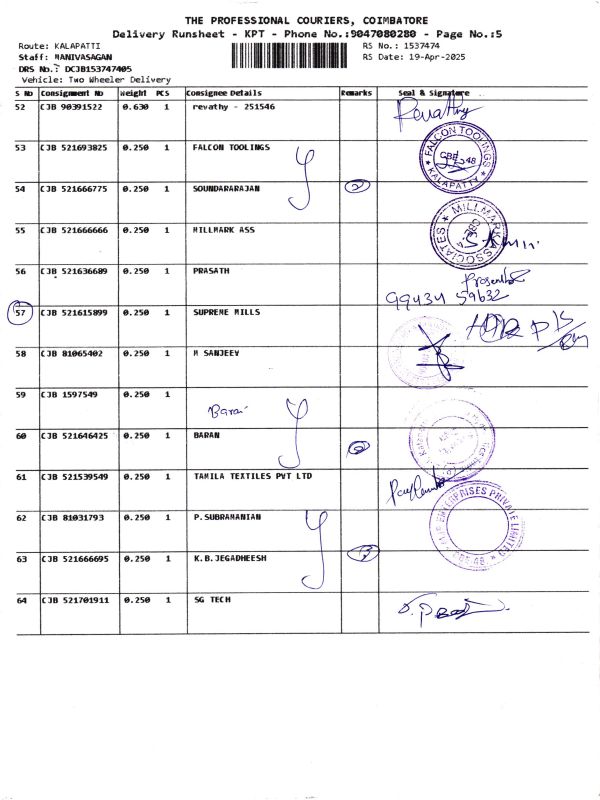 THE PROFESSIONAL COURIERS, COIMBATORE
Delivery Runsheet - KPT - Phone No.:9047080280 - Page No.:5
Route: KALAPATTI RS No.: 1537474
Staff: MANIVASAGAN RS Date: 19-Apr-2025
DRS No.: DCJB153747405
Vehicle: Two Wheeler Delivery
S No Consignment No Weight PCS Consignee Details Remarks Seal & Signature
52 CJB 90391522 0.630 1 revathy - 251546 Revathy
53 CJB 521693825 0.250 1 FALCON TOOLINGS FALCON TOOLINGS KALAPATTY CBE 48
54 CJB 521666775 0.250 1 SOUNDARARAJAN 2
55 CJB 521666666 0.250 1 MILLMARK ASS MILLMARK ASSOCIATES
56 CJB 521636689 0.250 1 PRASATH 99434 59632
57 CJB 521615899 0.250 1 SUPREME MILLS
58 CJB 81065402 0.250 1 M SANJEEV
59 CJB 1597549 0.250 1 Baran
60 CJB 521646425 0.250 1 BARAN
61 CJB 521539549 0.250 1 TAMILA TEXTILES PVT LTD
62 CJB 81031793 0.250 1 P.SUBRAMANIAN ENTERPRISES PRIVATE LIMITED
63 CJB 521666695 0.250 1 K.B.JEGADHEESH
64 CJB 521701911 0.250 1 SG TECH